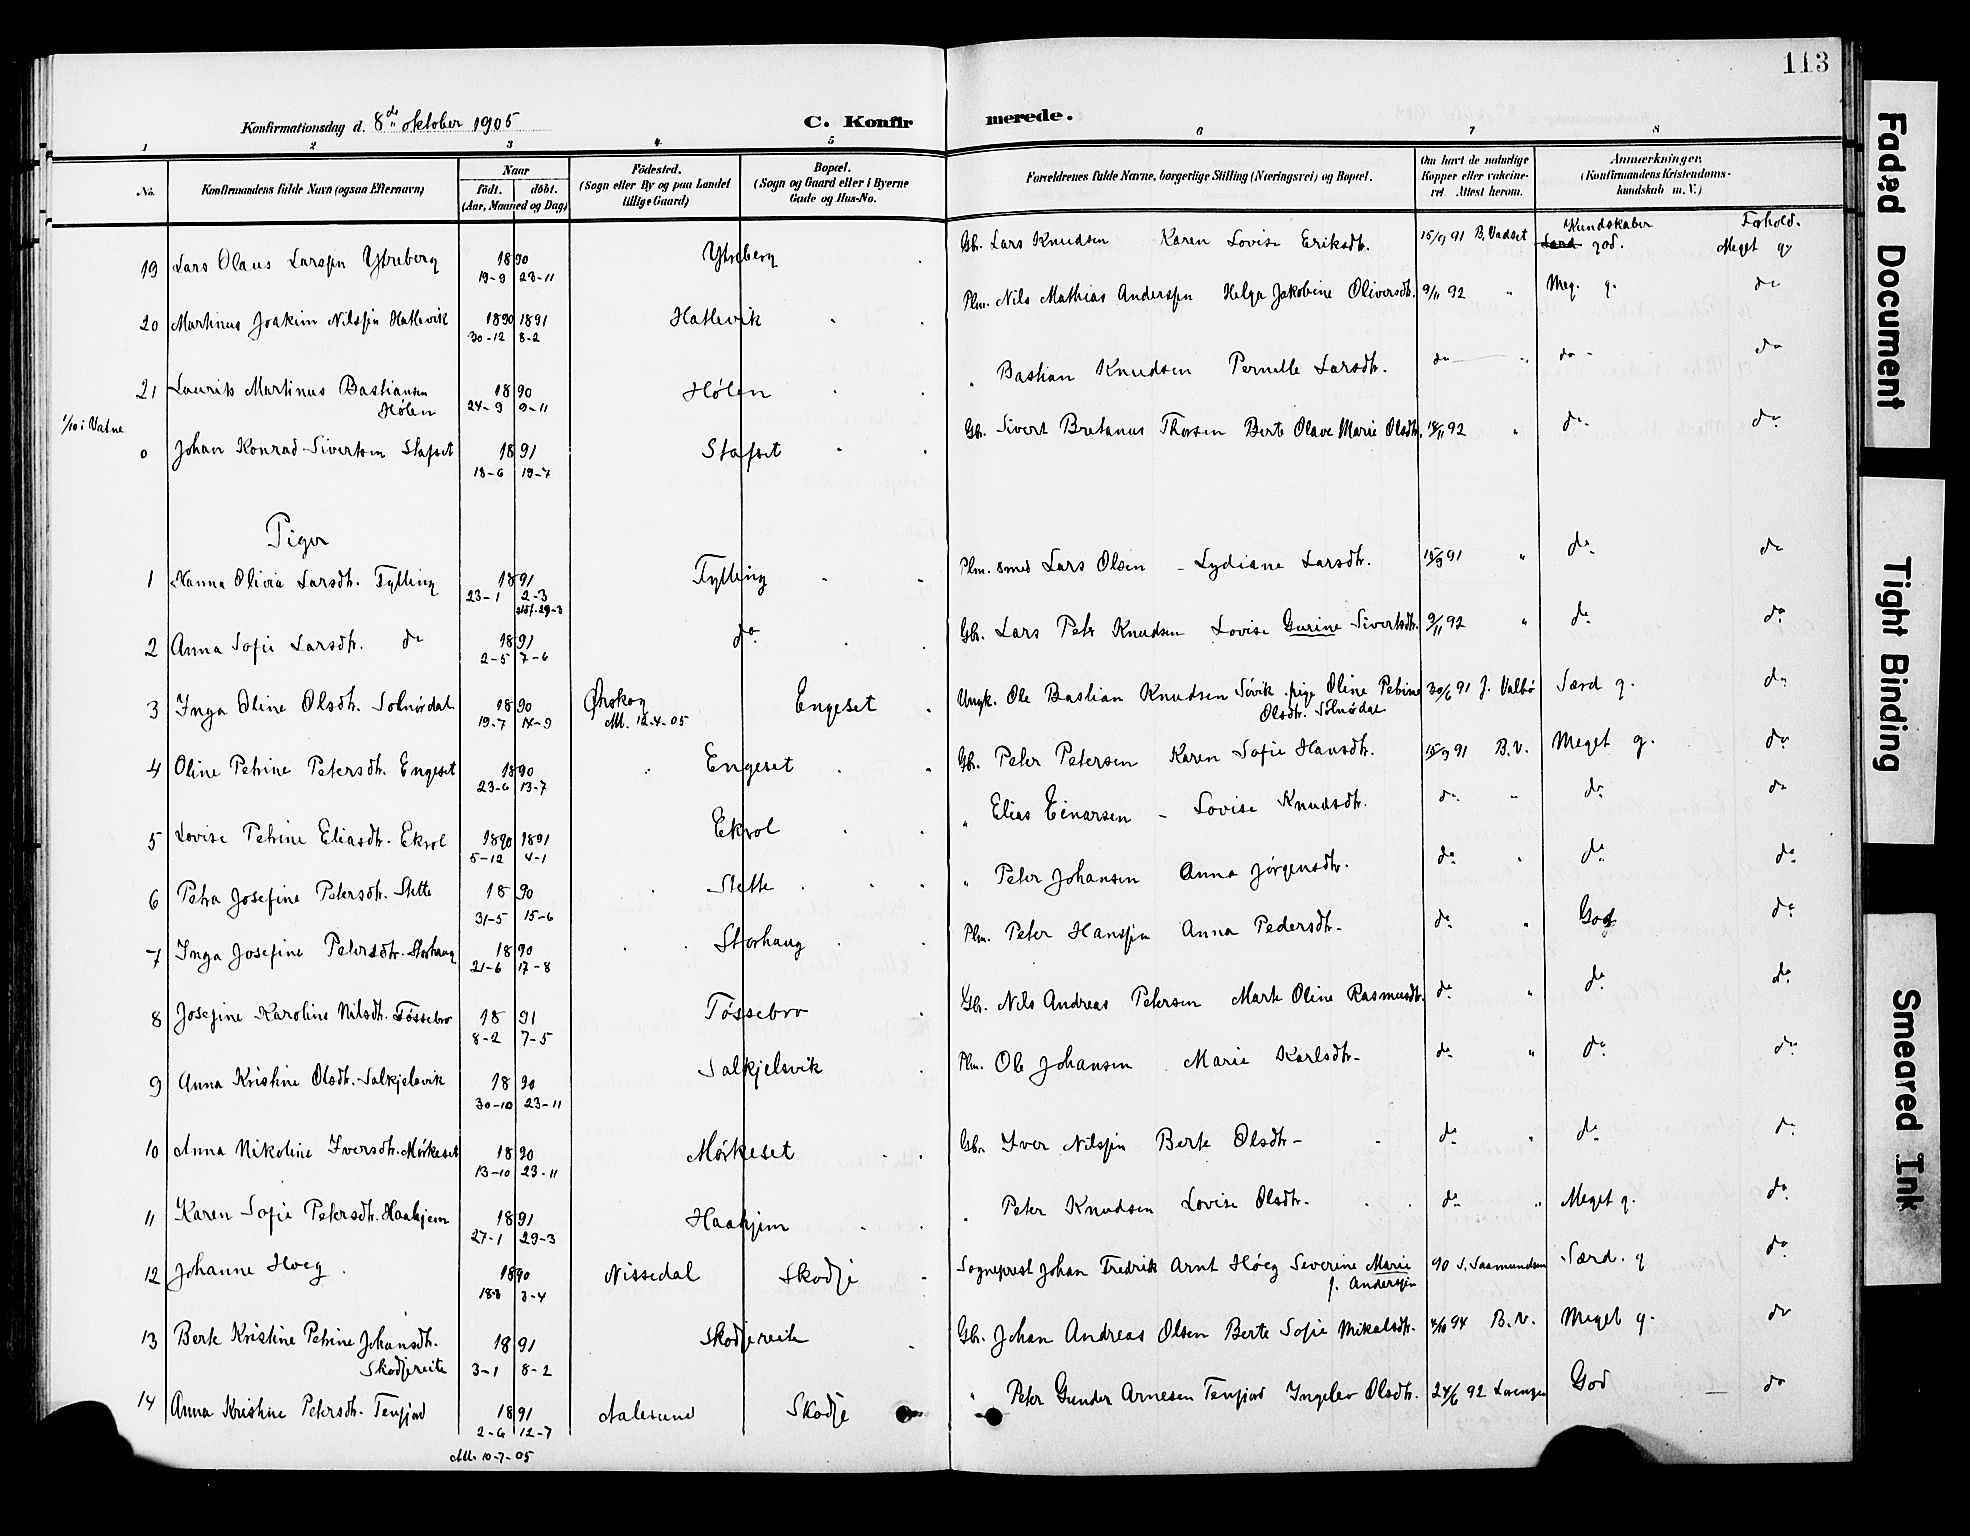 113
Konfirmationsdag d. 8de oktober 1905
C. Konfirmerede.
1 2 3 4 5 6 7 8
No. Konfirmandens fulde Navn (ogsaa Efternavn) Naar født. døbt. (Aar, Maaned og Dag) Fødested. (Sogn eller By og paa Landet tillige Gaard) Bopæl. (Sogn og Gaard eller i Byerne Gade og Hus-No. Forældrenes fulde Navne, borgerlige Stilling (Næringsvei) og Bopæl. Om havt de naturlige Kopper eller vakcineret. Attest herom. Anmærkninger. (Konfirmandens Kristendomskundskab m. V.)
Kundskaber Forhold.
19 Lars Olaus Larssen Ytreberg 1890 19-9 23-11 Ytreberg Gb. Lars Knudsen Karen Lovise Eriksdtr. 15/9 91 B. Vadset god. Meget g
20 Martinus Joakim Nilssen Hatlevik 1890 30-12 1891 8-2 Hatlevik Plm. Nils Mathias Anderssen Helga Jakobine Oliversdtr. 9/11 92 " Meg. g. do
21 Laurits Martinus Bastiansen Hølen 1890 24-9 9-11 Hølen " Bastian Knudsen Pernille Larsdtr. do " do do
1/10 i Vatne
0 Johan Konrad Sivertsen Stafset 1891 18-6 19-7 Stafset Gb. Sivert Bretanus Thorsen Berte Olave Marie Olsdtr. 18/11 92 " do do
Piger
1 Nanna Olivia Larsdtr. Fylling 1891 23-1 2-3 29-3 Fylling Plm. smed Lars Olsen - Lydiane Larsdtr. 15/9 91 " do do
2 Anna Sofie Larsdtr. do 1891 2-5 7-6 do Gb. Lars Petr Knudsen Lovise Gurine Sivertsdtr. 9/11 92 " do do
3 Inga Oline Olsdtr. Solnørdal 1890 19-7 14-9 Ørskog Att. 12-4-05 Engeset Ungk. Ole Bastian Knudsen Søvik pige Oline Petrine Olsdtr. Solnørdal 30/6 91 J. Valbø Særd g. do
4 Oline Petrine Petersdtr. Engeset 1890 23-6 13-7 Engeset Gb. Peter Petersen Karen Sofie Hansdtr. 15/9 91 B.V. Meget g. do
5 Lovise Petrine Eliasdtr. Ekrol 1890 5-12 1891 4-1 Ekrol " Elias Einarsen - Lovise Knudsdtr. do " do do
6 Petra Josefine Petersdtr. Stette 1890 31-5 15-6 Stette " Peter Johansen Anna Jørgensdtr. do " do do
7 Inga Josefine Petersdtr. Storhaug 1890 21-6 17-8 Storhaug Plm. Peter Hanssen Anna Pedersdtr. do " God do
8 Josefine Karoline Nilsdtr. Tøssebro 1891 8-2 7-5 Tøssebro Gb. Nils Andreas Petersen Marte Oline Rasmusdtr. do " do do
9 Anna Kristine Olsdtr. Salkjelsvik 1890 30-10 23-11 Salkjelsvik Plm. Ole Johansen Marie Karlsdtr. do " do do
10 Anna Nikoline Iversdtr. Mørkeset 1890 13-10 23-11 Mørkeset Gb. Iver Nilssen Berte Olsdtr. do " do do
11 Karen Sofie Petersdtr. Haahjem 1891 27-1 29-3 Haahjem " Peter Knudsen Lovise Olsdtr. do " Meget g. do
12 Johanne Høeg 1890 18-3 3-4 Nissedal Skodje Sogneprest Johan Fredrik Arnt Høeg Severine Marie f. Anderssen 90 S. Saamundsen Særd. g do
13 Berte Kristine Petrine Johansdtr. Skodjereite 1891 3-1 8-2 Skodjereite Gb. Johan Andreas Olsen Berte Sofie Mikalsdtr. 4/10 94 B.V. Meget g. do
14 Anna Kristine Petersdtr. Tenfjord 1891 2-6 12-7 Aalesund Skodje " Peter Gunder Arnesen Tenfjord Ingelev Olsdtr. 24/6 92 God do
Att. 10-7-05
Faded Document
Tight Binding
Smeared Ink